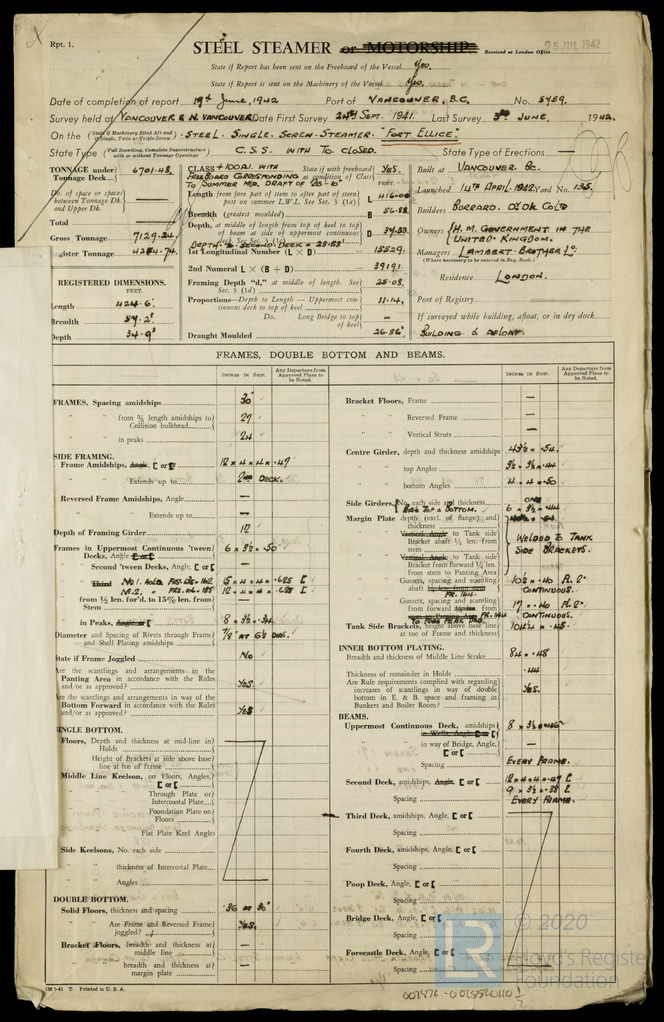 Rpt. 1.
STEEL STEAMER or MOTORSHIP.
Received at London Office 25 JUL 1942
State if Report has been sent on the Freeboard of the Vessel Yes.
State if Report is sent on the Machinery of the Vessel Yes.
Date of completion of report 19th June, 1942 Port of VANCOUVER, B.C. No. 5459.
Survey held at VANCOUVER & N. VANCOUVER Date First Survey 24th SEPT. 1941. Last Survey 3rd JUNE, 1942.
On the (State if Machinery fitted Aft and if Single, Twin or Triple Screw) STEEL. SINGLE. SCREW. STEAMER. "FORT ELLICE".
State Type (Full Scantling, Complete Superstructure with or without Tonnage Openings) C.S.S. WITH TO CLOSED. State Type of Erections —
TONNAGE under Tonnage Deck... 6701.48
Do. of space or spaces between Tonnage Dk. and Upper Dk. —
Total —
Gross Tonnage 7129.24
Register Tonnage 4254.74
REGISTERED DIMENSIONS.
FEET.
Length 424.6'
Breadth 57.2'
Depth 34.9'
CLASS +100A1. WITH FREEBOARD CORRESPONDING TO SUMMER MLD. DRAFT OF 26'-10" State if with freeboard as condition of Class YES.
FEET.
Length from fore part of stem to after part of stern post on summer L.W.L. See Sec. 3 (1a) L 416.00
Breadth (greatest moulded) B 56.88
Depth, at middle of length from top of keel to top of beam at side of uppermost continuous deck. See Sec. 3 (1c) D 37.33
DEPTH TO SECOND DECK = 28.58'
1st Longitudinal Number (L × D) 15529.
2nd Numeral L × (B + D) 39191
Framing Depth "d," at middle of length. See Sec. 3 (1d) 25.08.
Proportions—Depth to Length—Uppermost continuous deck to top of keel 11.14.
Do. Long Bridge to top of keel —
Draught Moulded 26.86'
Built at VANCOUVER BC.
Launched 14TH APRIL 1942 Yard No. 135.
Builders BURRARD. DY DK CO LTD
Owners H. M. GOVERNMENT IN THE UNITED KINGDOM.
Managers LAMBERT BROTHERS LD.
(Where necessary to be entered in Reg. Book.)
Residence LONDON.
Port of Registry
If surveyed while building, afloat, or in dry dock
BUILDING & AFLOAT.
FRAMES, DOUBLE BOTTOM AND BEAMS.
INCHES IN SHIP. Any Departure from Approved Plans to be Noted.
FRAMES, Spacing amidships 30"
" " from 3/5 length amidships to Collision bulkhead 27
" " in peaks 24
SIDE FRAMING.
Frame Amidships, Angle, [ or [ 12 × 4 × 4 × .47
" " Extends up to 2ND DECK.
Reversed Frame Amidships, Angle —
" " Extends up to —
Depth of Framing Girder 12
Frames in Uppermost Continuous 'tween Decks, Angle [ or [ 6 × 3½ × .50
" Second 'tween Decks, Angle, [ or [ —
" Third No 1. HOLD 15 × 4 × 4 × .625 [
No. 2. " 12 × 4 × 4 × .625 [
" from ½ len. for'd. to 15% len. from Stem
" in Peaks, Angle or [ 8 × 3½ × .34
Diameter and Spacing of Rivets through Frame and Shell Plating amidships 7/8" AT 6½ DIAS.
State if Frame Joggled No
Are the scantlings and arrangements in the Panting Area in accordance with the Rules and/or as approved? YES.
Are the scantlings and arrangements in way of the Bottom Forward in accordance with the Rules and/or as approved? YES
SINGLE BOTTOM.
Floors, Depth and thickness at mid-line in Holds
" Height of Brackets at side above base line at toe of frame
Middle Line Keelson, on Floors, Angles, [ or [
" " Through Plate or Intercostal Plate
" " Foundation Plate on Floors
" " Flat Plate Keel Angles
Side Keelsons, No. each side
" " thickness of Intercostal Plate
" " Angles
DOUBLE BOTTOM.
Solid Floors, thickness and spacing .36 AT 30"
" " Are Frame and Reversed Frame joggled? YES.
Bracket Floors, breadth and thickness at middle line —
" " breadth and thickness at margin plate —
INCHES IN SHIP. Any Departure from Approved Plans to be Noted.
Bracket Floors, Frame —
" " Reversed Frame —
" " Vertical Struts —
Centre Girder, depth and thickness amidships 43½ × .54
" " top Angles 3½ × 3½ × .44
" " bottom Angles 4 × 4 × .50
Side Girders, No. each side and thickness ONE
BARS TOP & BOTTOM. 6 × 3½ × .44
Margin Plate depth (excl. of flange) and thickness
" Vertical Angle to Tank side Bracket abaft ¼ len. from stem WELDED TO TANK SIDE BRACKETS.
" Vertical Angle to Tank side Bracket from forward ¼ len. from stem to Panting Area
" Gussets, spacing and scantling abaft ¼ len. from stem FR. 144. 10½ × .40 PL. CONTINUOUS.
" Gussets, spacing and scantling from forward FR. 144 TO FORE PEAK BHD. 17 × .40 PL. CONTINUOUS.
Tank Side Brackets, height above base line at toe of Frame and thickness 104½ × .45.
INNER BOTTOM PLATING.
Breadth and thickness of Middle Line Strake 84 × .48
Thickness of remainder in Holds .44
Are Rule requirements complied with regarding increases of scantlings in way of double bottom in E. & B. space and framing in Bunkers and Boiler Room? YES.
BEAMS.
Uppermost Continuous Deck, amidships 8 × 3½ × .46
" " in way of Bridge, Angle, [ or [ —
Spacing EVERY FRAME.
Second Deck, amidships, Angle, [ or [ 12 × 4 × 4 × .47 [
9 × 3½ × .38 [
Spacing EVERY FRAME.
Third Deck, amidships, Angle, [ or [
Spacing
Fourth Deck, amidships, Angle, [ or [
Spacing
Poop Deck, Angle, [ or [
Spacing
Bridge Deck, Angle, [ or [
Spacing
Forecastle Deck, Angle, [ or [
Spacing
1M 7-41 T. Printed in U. S. A.
© 2020
LR
Lloyd's Register
Foundation